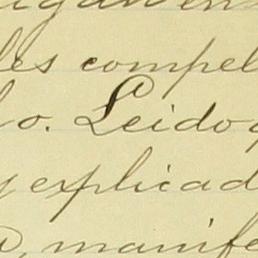 les compel
lo. Leido q
y explicad
a, manife